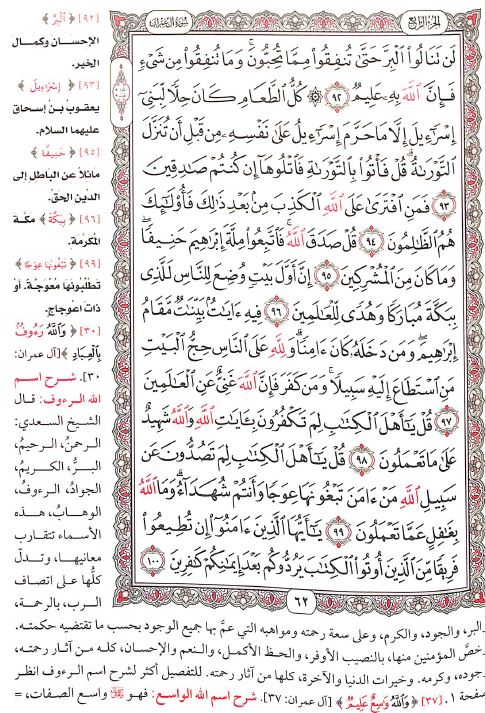 الجزء الرابع
سورة آل عمران
لَن تَنَالُوا۟ ٱلْبِرَّ حَتَّىٰ تُنفِقُوا۟ مِمَّا تُحِبُّونَ ۚ وَمَا تُنفِقُوا۟ مِن شَىْءٍ
فَإِنَّ ٱللَّهَ بِهِۦ عَلِيمٌ ٩٢ ۞ كُلُّ ٱلطَّعَامِ كَانَ حِلًّا لِّبَنِىٓ
إِسْرَٰٓءِيلَ إِلَّا مَا حَرَّمَ إِسْرَٰٓءِيلُ عَلَىٰ نَفْسِهِۦ مِن قَبْلِ أَن تُنَزَّلَ
ٱلتَّوْرَىٰةُ ۗ قُلْ فَأْتُوا۟ بِٱلتَّوْرَىٰةِ فَٱتْلُوهَآ إِن كُنتُمْ صَٰدِقِينَ
٩٣ فَمَنِ ٱفْتَرَىٰ عَلَى ٱللَّهِ ٱلْكَذِبَ مِنۢ بَعْدِ ذَٰلِكَ فَأُو۟لَٰٓئِكَ
هُمُ ٱلظَّٰلِمُونَ ٩٤ قُلْ صَدَقَ ٱللَّهُ ۗ فَٱتَّبِعُوا۟ مِلَّةَ إِبْرَٰهِيمَ حَنِيفًا ۖ
وَمَا كَانَ مِنَ ٱلْمُشْرِكِينَ ٩٥ إِنَّ أَوَّلَ بَيْتٍ وُضِعَ لِلنَّاسِ لَلَّذِى
بِبَكَّةَ مُبَارَكًا وَهُدًى لِّلْعَٰلَمِينَ ٩٦ فِيهِ ءَايَٰتٌۢ بَيِّنَٰتٌ مَّقَامُ
إِبْرَٰهِيمَ ۖ وَمَن دَخَلَهُۥ كَانَ ءَامِنًا ۗ وَلِلَّهِ عَلَى ٱلنَّاسِ حِجُّ ٱلْبَيْتِ
مَنِ ٱسْتَطَاعَ إِلَيْهِ سَبِيلًا ۚ وَمَن كَفَرَ فَإِنَّ ٱللَّهَ غَنِىٌّ عَنِ ٱلْعَٰلَمِينَ
٩٧ قُلْ يَٰٓأَهْلَ ٱلْكِتَٰبِ لِمَ تَكْفُرُونَ بِـَٔايَٰتِ ٱللَّهِ وَٱللَّهُ شَهِيدٌ
عَلَىٰ مَا تَعْمَلُونَ ٩٨ قُلْ يَٰٓأَهْلَ ٱلْكِتَٰبِ لِمَ تَصُدُّونَ عَن
سَبِيلِ ٱللَّهِ مَنْ ءَامَنَ تَبْغُونَهَا عِوَجًا وَأَنتُمْ شُهَدَآءُ ۗ وَمَا ٱللَّهُ
بِغَٰفِلٍ عَمَّا تَعْمَلُونَ ٩٩ يَٰٓأَيُّهَا ٱلَّذِينَ ءَامَنُوٓا۟ إِن تُطِيعُوا۟
فَرِيقًا مِّنَ ٱلَّذِينَ أُوتُوا۟ ٱلْكِتَٰبَ يَرُدُّوكُم بَعْدَ إِيمَٰنِكُمْ كَٰفِرِينَ ١٠٠
٦٢
[٩٢] ﴿ٱلْبِرَّ﴾
الإحسان وكمال
الخير.
[٩٣] ﴿إِسْرَٰٓءِيلَ﴾
يعقوب بن إسحاق
عليهما السلام.
[٩٥] ﴿حَنِيفًا﴾
مائلاً عن الباطل إلى
الدين الحق.
[٩٦] ﴿بِبَكَّةَ﴾ مكة
المكرمة.
[٩٩] ﴿تَبْغُونَهَا عِوَجًا﴾
تطلبونها معوجة، أو
ذات اعوجاج.
[٣٠] ﴿وَٱللَّهُ رَءُوفٌۢ
بِٱلْعِبَادِ﴾ [آل عمران:
٣٠]. شرح اسم
الله الرءوف: قال
الشيخ السعدي:
الرحمن، الرحيم،
البر، الكريم،
الجواد، الرءوف،
الوهاب، هذه
الأسماء تتقارب
معانيها، وتدل
كلها على اتصاف
الرب، بالرحمة،
والبر، والجود، والكرم، وعلى سعة رحمته ومواهبه التي عمَّ بها جميع الوجود بحسب ما تقتضيه حكمته.
وخصَّ المؤمنين منها، بالنصيب الأوفر، والحظ الأكمل، والنعم والإحسان، كله من آثار رحمته،
وجوده، وكرمه. وخيرات الدنيا والآخرة، كلها من آثار رحمته. للتفصيل أكثر لشرح اسم الرءوف انظر
صفحة ١. [٣٧] ﴿وَٱللَّهُ وَٰسِعٌ عَلِيمٌ﴾ [آل عمران: ٣٧]. شرح اسم الله الواسع: فهو ﷻ واسع الصفات، =